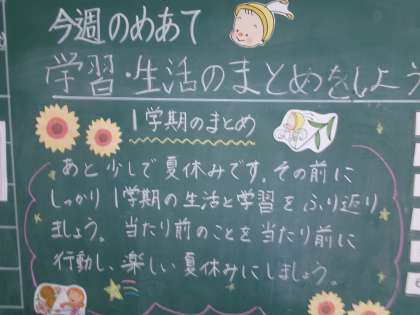 今週のめあて
学習・生活のまとめをしよう
1学期のまとめ
あと少しで夏休みです。その前に
しっかり1学期の生活と学習をふり返り
ましょう。当たり前のことを当たり前に
行動し、楽しい夏休みにしましょう。